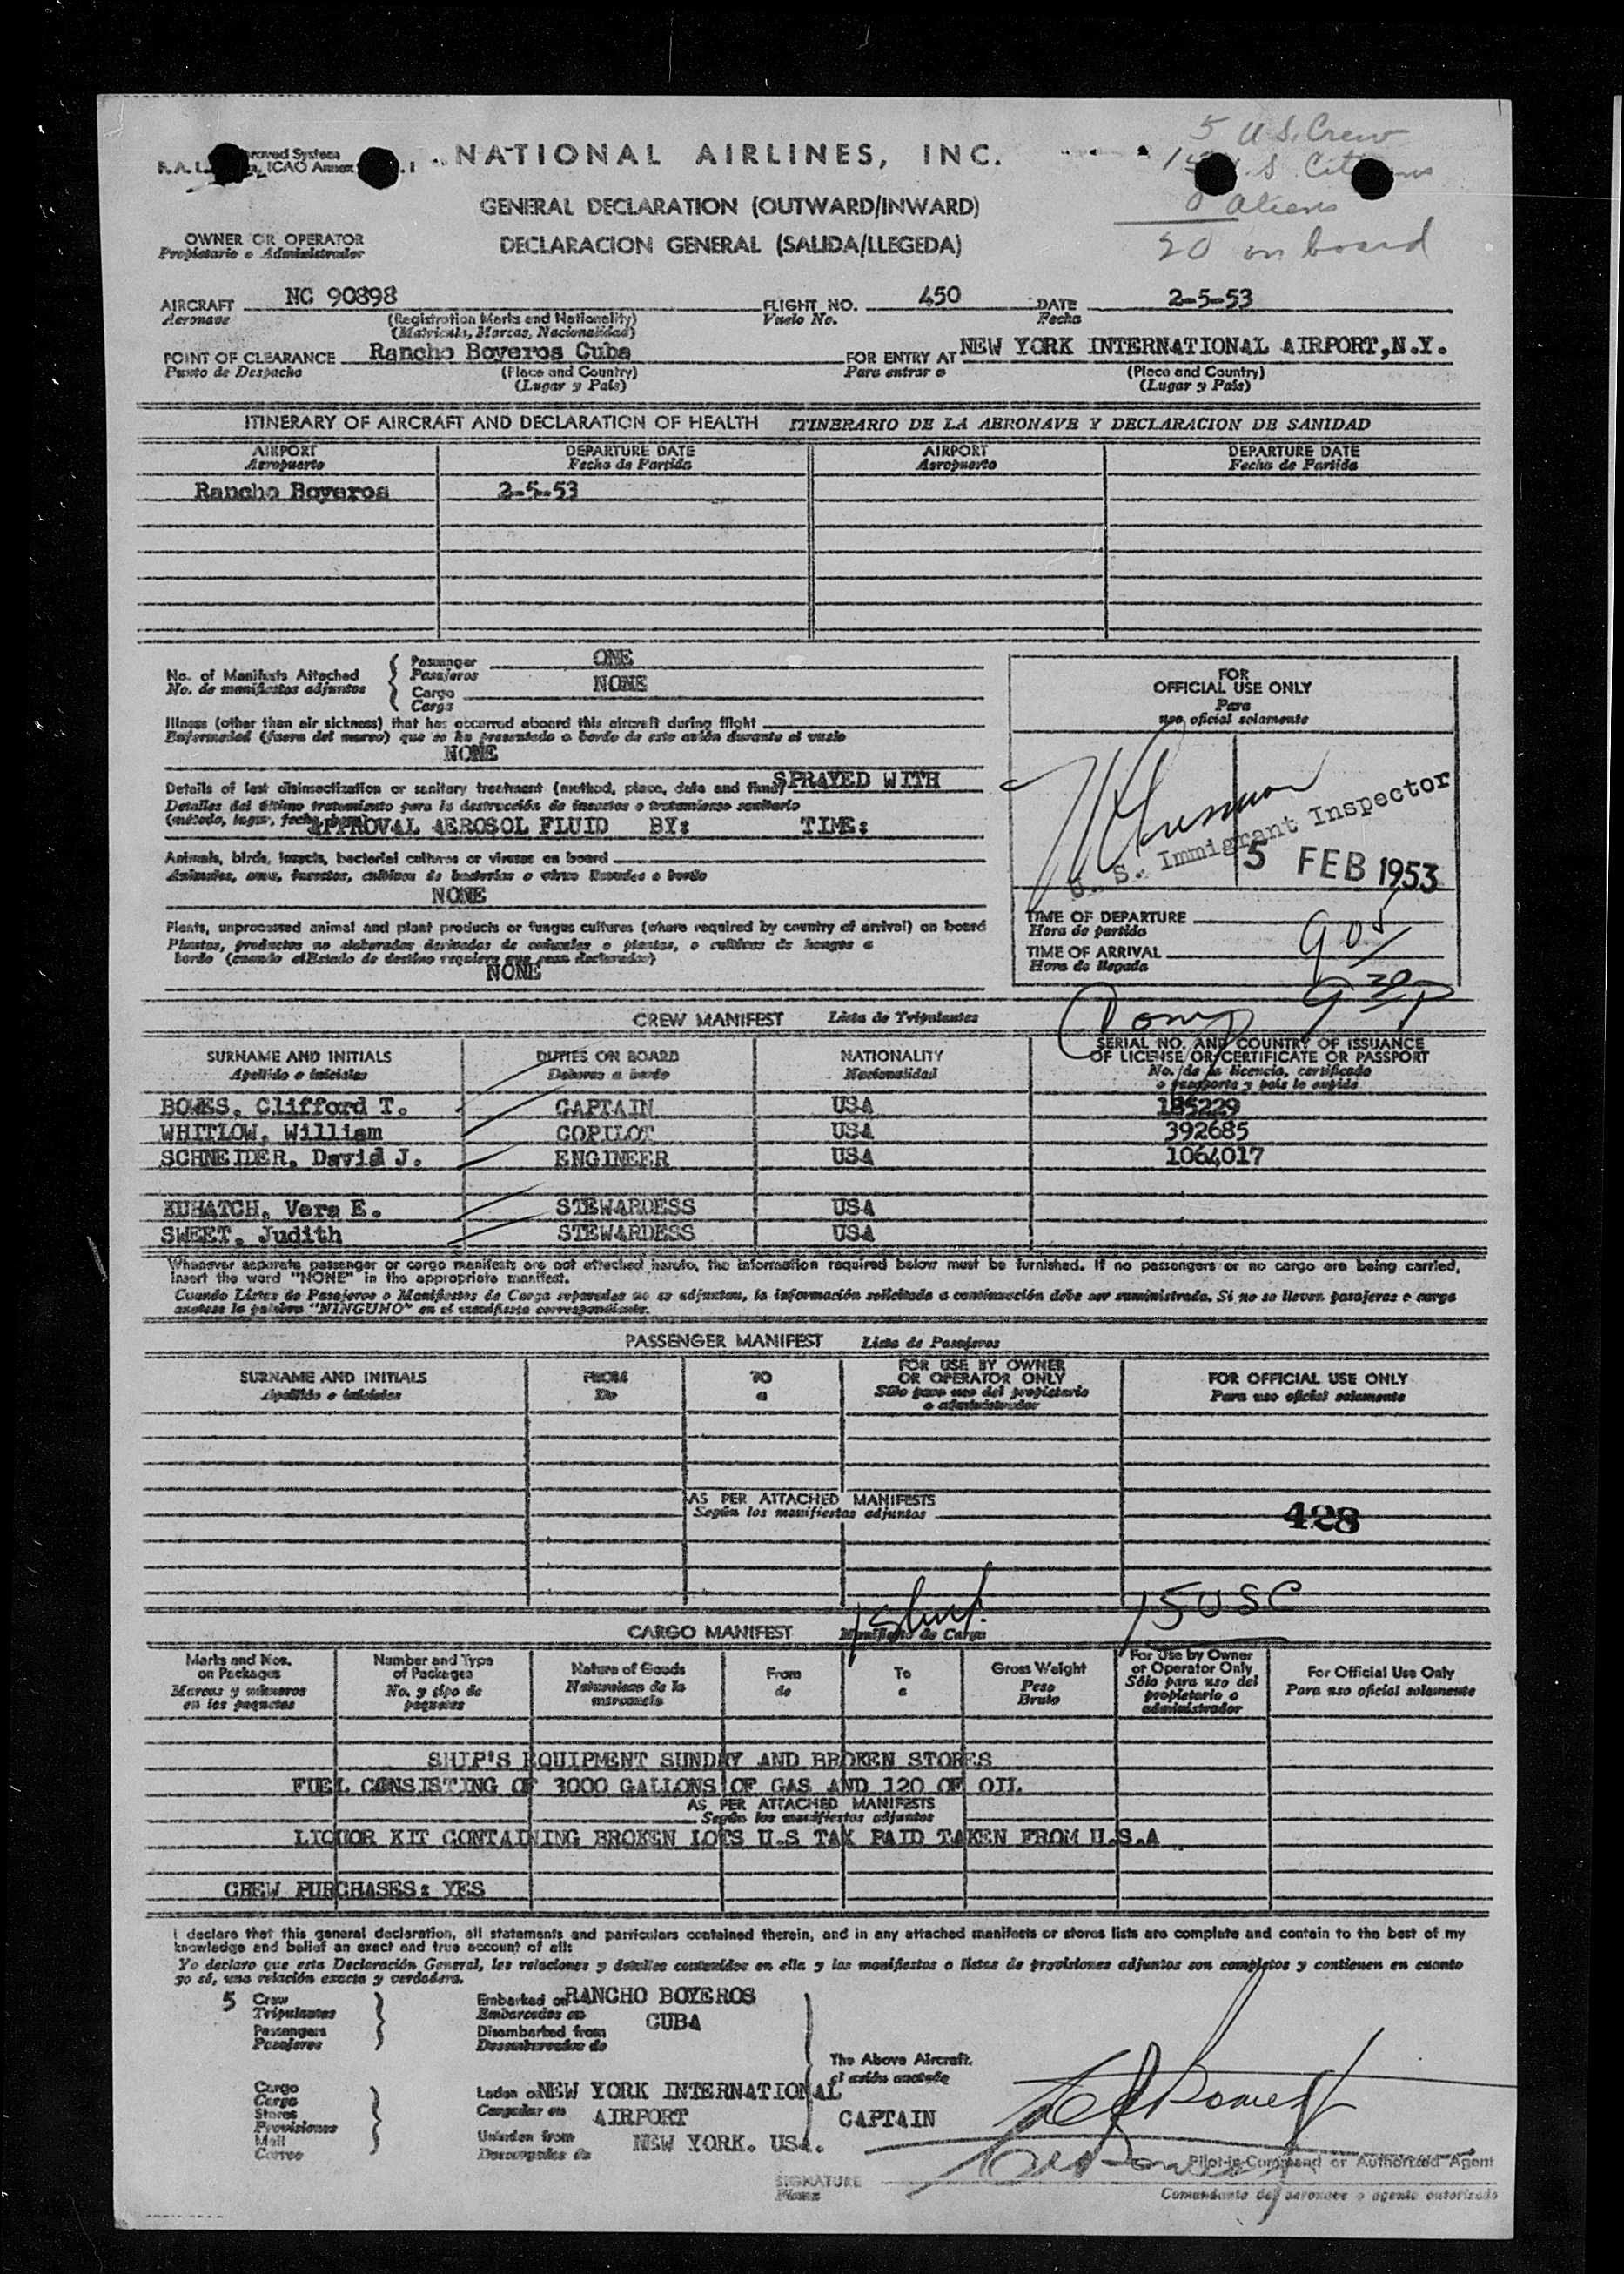 5 U.S. Crew
NATIONAL AIRLINES, INC.
F. A. L. ICAO Annex
GENERAL DECLARATION (OUTWARD/INWARD)
0 aliens
OWNER OR OPERATOR
Propietario o Administrador
DECLARACION GENERAL (SALIDA/LLEGEDA)
20 on board
AIRCRAFT NC 90898 FLIGHT NO. 450 DATE 2-5-53
Aeronave (Registration Marks and Nationality) Vuelo No. Fecha
(Matricula, Marcas, Nacionalidad)
POINT OF CLEARANCE Rancho Boyeros Cuba FOR ENTRY AT NEW YORK INTERNATIONAL AIRPORT,N.Y.
Punto de Despacho (Place and Country) Para entrar a (Place and Country)
(Lugar y País) (Lugar y País)
ITINERARY OF AIRCRAFT AND DECLARATION OF HEALTH ITINERARIO DE LA AERONAVE Y DECLARACION DE SANIDAD
AIRPORT DEPARTURE DATE AIRPORT DEPARTURE DATE
Aeropuerto Fecha de Partida Aeropuerto Fecha de Partida
Rancho Boyeros 2-5-53
No. of Manifests Attached Passenger ONE
No. de manifiestos adjuntos Pasajeros
Cargo NONE
Carga
Illness (other than air sickness) that has occurred aboard this aircraft during flight
Enfermedad (fuera del mareo) que se ha presentado a bordo de este avión durante el vuelo
NONE
Details of last disinsectization or sanitary treatment (method, place, date and time) SPRAYED WITH
Detalles del último tratamiento para la destrucción de insectos o tratamiento sanitario
(método, lugar, fecha
APPROVAL AEROSOL FLUID BY: TIME:
Animals, birds, insects, bacterial cultures or viruses on board
Animales, aves, insectos, cultivos de bacterias o virus llevados a bordo
NONE
Plants, unprocessed animal and plant products or fungus cultures (where required by country of arrival) on board
Plantas, productos no elaborados derivados de animales o plantas, o cultivos de hongos a
bordo (cuando el Estado de destino requiera que sean declarados)
NONE
FOR
OFFICIAL USE ONLY
Para
uso oficial solamente
U. S. Immigrant Inspector
5 FEB 1953
TIME OF DEPARTURE 905
Hora de partida
TIME OF ARRIVAL
Hora de llegada
9 30 P
CREW MANIFEST Lista de Tripulantes
SURNAME AND INITIALS DUTIES ON BOARD NATIONALITY SERIAL NO. AND COUNTRY OF ISSUANCE
OF LICENSE OR CERTIFICATE OR PASSPORT
Apellido e iniciales Deberes a bordo Nacionalidad No. de la licencia, certificado
o pasaporte y país lo expide
BOWES, Clifford T. CAPTAIN USA 185229
WHITLOW, William COPILOT USA 392685
SCHNEIDER, David J. ENGINEER USA 1064017
KUHATCH, Vera E. STEWARDESS USA
SWEET, Judith STEWARDESS USA
Whenever separate passenger or cargo manifests are not attached hereto, the information required below must be furnished. If no passengers or no cargo are being carried,
insert the word "NONE" in the appropriate manifest.
Cuando Listas de Pasajeros o Manifiestos de Carga separados no se adjuntan, la información solicitada a continuación debe ser suministrada. Si no se llevan pasajeros o carga
anótese la palabra "NINGUNO" en el manifiesto correspondiente.
PASSENGER MANIFEST Lista de Pasajeros
SURNAME AND INITIALS FROM TO FOR USE BY OWNER
OR OPERATOR ONLY FOR OFFICIAL USE ONLY
Apellido e iniciales De a Sólo para uso del propietario
o administrador Para uso oficial solamente
AS PER ATTACHED MANIFESTS
Según los manifiestos adjuntos
428
15 USC
CARGO MANIFEST Manifiesto de Carga
Marks and Nos.
on Packages
Marcas y números
en los paquetes
Number and Type
of Packages
No. y tipo de
paquetes
Nature of Goods
Naturaleza de la
mercancia
From
de
To
a
Gross Weight
Peso
Bruto
For Use by Owner
or Operator Only
Sólo para uso del
propietario o
administrador
For Official Use Only
Para uso oficial solamente
SHIP'S EQUIPMENT SUNDRY AND BROKEN STORES
FUEL CONSISTING OF 3000 GALLONS OF GAS AND 120 OF OIL
AS PER ATTACHED MANIFESTS
Según los manifiestos adjuntos
LIQUOR KIT CONTAINING BROKEN LOTS U.S TAX PAID TAKEN FROM U.S.A
CREW PURCHASES: YES
I declare that this general declaration, all statements and particulars contained therein, and in any attached manifests or stores lists are complete and contain to the best of my
knowledge and belief an exact and true account of all:
Yo declaro que esta Declaración General, las relaciones y detalles contenidos en ella y los manifiestos o listas de provisiones adjuntos son completos y contienen en cuanto
yo sé, una relación exacta y verdadera.
5 Crew
Tripulantes
Passengers
Pasajeros
Embarked on RANCHO BOYEROS
Embarcados en CUBA
Disembarked from
Desembarcados de
The Above Aircraft.
el avión anotado
Cargo
Carga
Stores
Provisiones
Mail
Correo
Laden on NEW YORK INTERNATIONAL
Cargados en AIRPORT CAPTAIN
Unladen from NEW YORK. USA.
Descargados de
Pilot-in-Command or Authorized Agent
SIGNATURE
Firma
Comandante de aeronave o agente autorizado